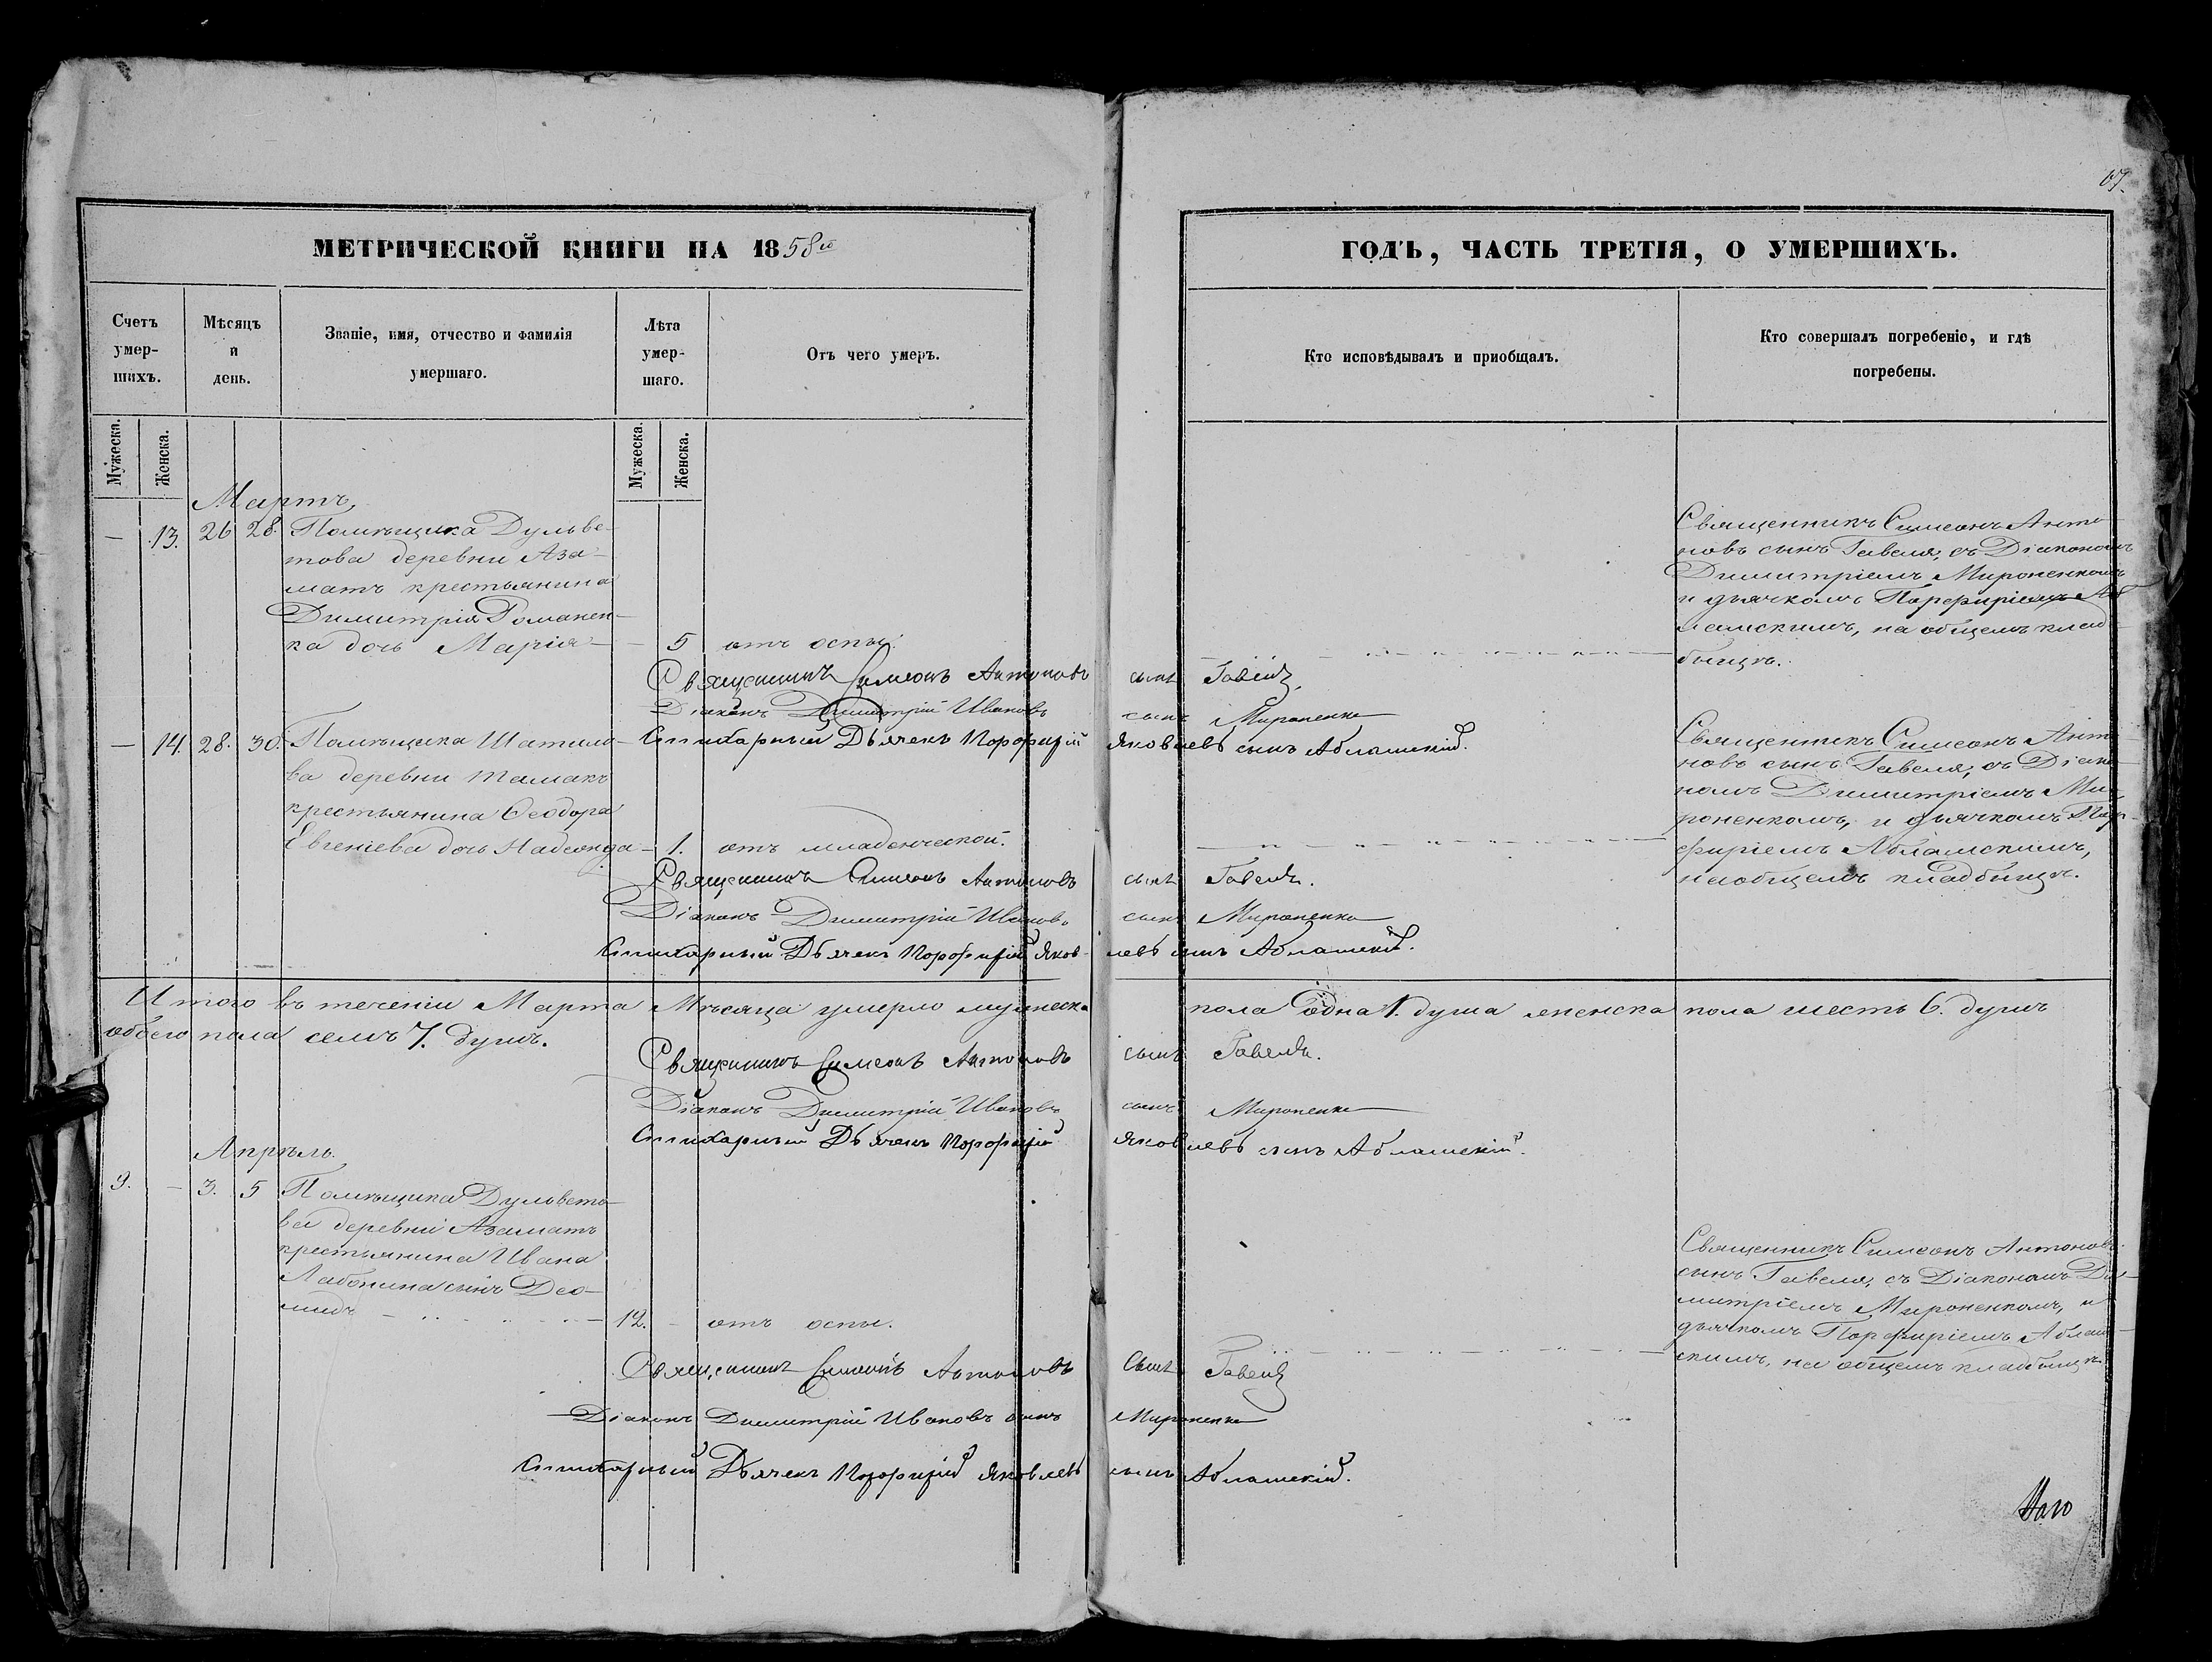 67.
МЕТРИЧЕСКОЙ КНИГИ НА 1858й
ГОДЪ, ЧАСТЬ ТРЕТІЯ, О УМЕРШИХЪ.
Счетъ умер- шихъ.
Мѣсяцъ и день.
Званіе, имя, отчество и фамилія умершаго.
Лѣта умер- шаго.
Отъ чего умеръ.
Кто исповѣдывалъ и пріобщалъ.
Кто совершалъ погребеніе, и гдѣ погребены.
Мужеска.
Женска.
Мужеска.
Женска.
Мартъ,
— 13. 26 28. Помѣщика Дульве-
това деревни Аза-
матъ крестьянина
Димитрія Романен-
ка дочь Марія — 5 отъ оспы.
Священникъ Симеонъ Анто-
новъ сынъ Гавеля, съ Діакономъ
Димитріемъ Мироненкомъ
и дьячкомъ Порфиріемъ Аб-
ламскимъ, на общемъ клад-
бищѣ.
Священникъ Симеонъ Антоновъ сынъ Гавель.
Діаконъ Димитрій Ивановъ сынъ Мироненко
Стихарный Дьячекъ Порфирій Яковлевъ сынъ Абламскій.
— 14. 28. 30. Помѣщика Шатило-
ва деревни Тамакъ
крестьянина Ѳеодора
Евгеніева дочь Надежда — 1. отъ младенческой.
Священникъ Симеонъ Анто-
новъ сынъ Гавеля, съ Діако-
номъ Димитріемъ Ми-
роненкомъ, и дьячкомъ Пор-
фиріемъ Абламскимъ,
на общемъ кладбищѣ.
Священникъ Симеонъ Антоновъ сынъ Гавель.
Діаконъ Димитрій Ивановъ сынъ Мироненко
Стихарный Дьячекъ Порфирій Яковлевъ сынъ Абламскій.
Итого въ теченіи Марта Мѣсяца умерло мужеска пола одна 1. душа женска пола шесть 6. душъ
обоего пола семь 7. душъ.
Священникъ Симеонъ Антоновъ сынъ Гавель.
Діаконъ Димитрій Ивановъ сынъ Мироненко
Стихарный Дьячекъ Порфирій Яковлевъ сынъ Абламскій.
Апрѣль.
9. — 3. 5 Помѣщика Дульвето-
ва деревни Азаматъ
крестьянина Ивана
Лабонина сынъ Део-
мидъ — 12. — отъ оспы.
Священникъ Симеонъ Антоновъ
сынъ Гавеля, съ Діакономъ Ди-
митріемъ Мироненкомъ, и
дьячкомъ Порфиріемъ Аблам-
скимъ, на общемъ кладбищѣ.
Священникъ Симеонъ Антоновъ сынъ Гавель
Діаконъ Димитрій Ивановъ сынъ Мироненко
Стихарный Дьячекъ Порфирій Яковлевъ сынъ Абламскій.